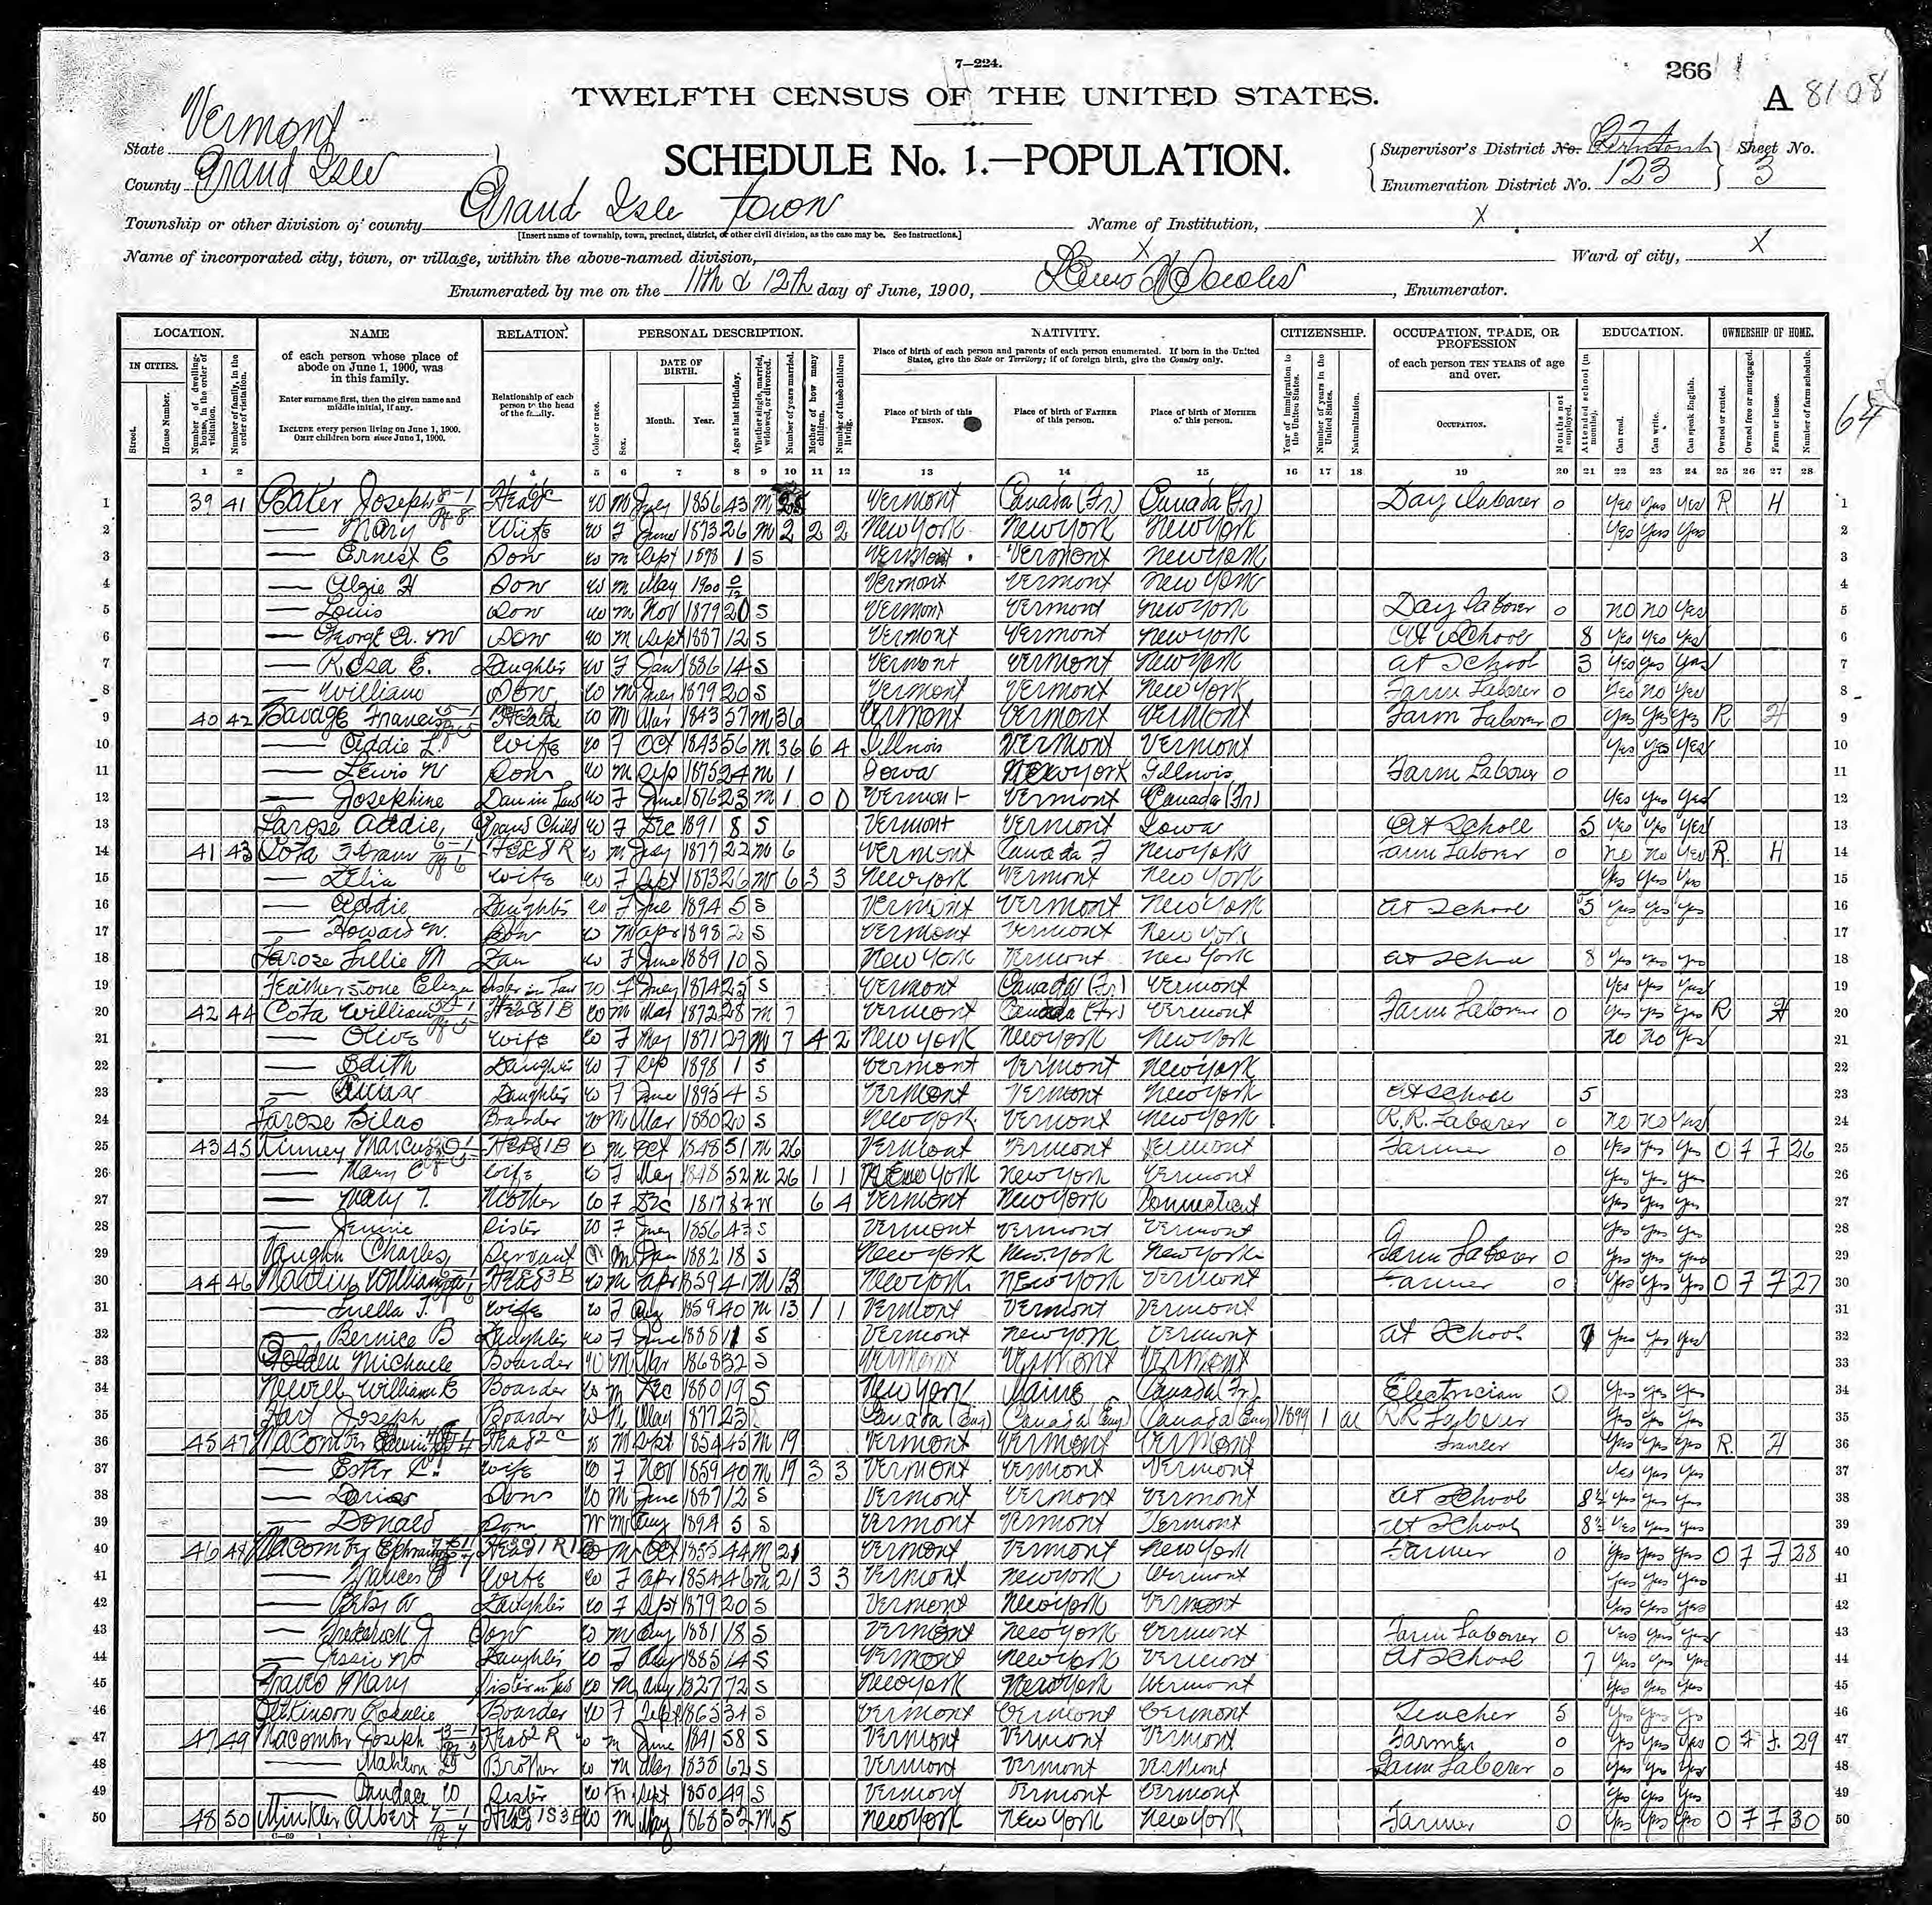 7—224.
266
A 8108
TWELFTH CENSUS OF THE UNITED STATES.
SCHEDULE No. 1.—POPULATION.
State Vermont
County Grand Isle
Supervisor's District No.
Sheet No. 3
Enumeration District No. 123
Township or other division of county Grand Isle town
[Insert name of township, town, precinct, district, or other civil division, as the case may be. See instructions.]
Name of Institution, X
Name of incorporated city, town, or village, within the above-named division, X
Ward of city, X
Enumerated by me on the 11th & 12th day of June, 1900, , Enumerator.
LOCATION. NAME RELATION. PERSONAL DESCRIPTION. NATIVITY. CITIZENSHIP. OCCUPATION, TRADE, OR PROFESSION EDUCATION. OWNERSHIP OF HOME.
IN CITIES.
Street.
House Number.
Number of dwelling-house, in the order of visitation.
Number of family, in the order of visitation.
of each person whose place of abode on June 1, 1900, was in this family.
Enter surname first, then the given name and middle initial, if any.
INCLUDE every person living on June 1, 1900.
OMIT children born since June 1, 1900.
Relationship of each person to the head of the family.
Color or race.
Sex.
DATE OF BIRTH.
Month. Year.
Age at last birthday.
Whether single, married, widowed, or divorced.
Number of years married.
Mother of how many children.
Number of these children living.
Place of birth of each person and parents of each person enumerated. If born in the United States, give the State or Territory; if of foreign birth, give the Country only.
Place of birth of this PERSON.
Place of birth of FATHER of this person.
Place of birth of MOTHER of this person.
Year of immigration to the United States.
Number of years in the United States.
Naturalization.
of each person TEN YEARS of age and over.
OCCUPATION.
Months not employed.
Attended school (in months).
Can read.
Can write.
Can speak English.
Owned or rented.
Owned free or mortgaged.
Farm or house.
Number of farm schedule.
64
1 2 4 5 6 7 8 9 10 11 12 13 14 15 16 17 18 19 20 21 22 23 24 25 26 27 28
1 39 41 Baker Joseph Head W M 1856 43 M Vermont Canada (Fr) Canada (Fr) Day Laborer 0 Yes Yes Yes R H 1
2 — Mary Wife W F June 1873 26 M 2 2 2 New York New York New York Yes Yes Yes 2
3 — Ernest E Son W M Sept 1898 1 S Vermont Vermont New York 3
4 — Alzie H Son W M May 1900 0/12 Vermont Vermont New York 4
5 — Louis Son W M Nov 1879 20 S Vermont Vermont New York Day Laborer 0 no no Yes 5
6 — George A. W Son W M Sept 1887 12 S Vermont Vermont New York At School 8 Yes Yes Yes 6
7 — Rosa E. Daughter W F Jan 1886 14 S Vermont Vermont New York at School 3 Yes Yes Yes 7
8 — William Son W M 1879 20 S Vermont Vermont New York Farm Laborer 0 Yes no Yes 8
9 40 42 Savage Francis Head W M Mar 1843 57 M 36 Vermont Vermont Vermont Farm Laborer 0 Yes Yes Yes R H 9
10 — Addie L. Wife W F Oct 1843 56 M 36 6 4 Illinois Vermont Vermont Yes Yes Yes 10
11 — Lewis N Son W M Sep 1875 24 M 1 Iowa New York Illinois Farm Laborer 0 11
12 — Josephine Dau in Law W F June 1876 23 M 1 0 0 Vermont Vermont Canada (Fr) Yes Yes Yes 12
13 Larose Addie Grand Child W F Dec 1891 8 S Vermont Vermont Iowa At Scholl 5 Yes Yes Yes 13
14 41 43 Cota Head W M July 1877 22 M 6 Vermont Canada F New York Farm Laborer 0 no no Yes R H 14
15 — Zelia Wife W F Sept 1873 26 M 6 3 3 New York Vermont New York Yes Yes Yes 15
16 — Addie Daughter W F 1894 5 S Vermont Vermont New York At School 5 Yes Yes Yes 16
17 — Howard W. Son W M Apr 1898 2 S Vermont Vermont New York 17
18 Larose Lillie M Dau W F June 1889 10 S New York Vermont New York at School 8 Yes Yes Yes 18
19 Featherstone Eliza Sister in Law W F 1874 25 S Vermont Canada (Fr) Vermont Yes Yes Yes 19
20 42 44 Cota William Head W M Mar 1872 28 M 7 Vermont Canada (Fr) Vermont Farm Laborer 0 Yes Yes Yes R H 20
21 — Olive Wife W F May 1871 29 M 7 4 2 New York New York New York no no Yes 21
22 — Edith Daughter W F Sep 1898 1 S Vermont Vermont New York 22
23 — Daughter W F June 1895 4 S Vermont Vermont New York At School 5 23
24 Larose Silas Boarder W M Mar 1880 20 S New York Vermont New York R.R. Laborer 0 no no Yes 24
25 43 45 Kinney Marcus Head W M Oct 1848 51 M 26 Vermont Vermont Vermont Farmer 0 Yes Yes Yes O F F 26 25
26 — Mary C Wife W F May 1848 52 M 26 1 1 New York New York Vermont Yes Yes Yes 26
27 — Mary T. Mother W F Dec 1817 82 W 6 4 Vermont New York Connecticut Yes Yes Yes 27
28 — Jennie Sister W F 1856 43 S Vermont Vermont Vermont Yes Yes Yes 28
29 Vaughn Charles Servant W M Jan 1882 18 S New York New York New York Farm Laborer 0 Yes Yes Yes 29
30 44 46 Martin William Head W M Apr 1859 41 M 13 New York New York Vermont Farmer 0 Yes Yes Yes O F F 27 30
31 — Luella J. Wife W F Aug 1859 40 M 13 1 1 Vermont Vermont Vermont 31
32 — Bernice B Daughter W F June 1888 11 S Vermont New York Vermont At School Yes Yes Yes 32
33 Golden Michael Boarder W M Mar 1868 32 S Vermont Vermont Vermont 33
34 Newell William E Boarder W M Dec 1880 19 S New York Maine Canada (Fr) Electrician 0 Yes Yes Yes 34
35 Joseph Boarder W M May 1877 23 Canada (Eng) Canada (Eng) Canada (Eng) 1899 1 al RR Laborer Yes Yes Yes 35
36 45 47 Macomber Head W M Sept 1854 45 M 19 Vermont Vermont Vermont Yes Yes Yes R. H 36
37 — Ester Wife W F Nov 1859 40 M 19 3 3 Vermont Vermont Vermont Yes Yes Yes 37
38 — Son W M June 1887 12 S Vermont Vermont Vermont At School 8½ Yes Yes Yes 38
39 — Donald Son W M Aug 1894 5 S Vermont Vermont Vermont At School 8½ Yes Yes Yes 39
40 46 48 Macomber Ephraim Head W M Oct 1855 44 M 21 Vermont Vermont New York Farmer 0 Yes Yes Yes O F F 28 40
41 — Frances Wife W F Apr 1854 46 M 21 3 3 Vermont New York Vermont Yes Yes Yes 41
42 — Daughter W F Sept 1879 20 S Vermont New York Vermont Yes Yes Yes 42
43 — Frederick J Son W M Aug 1881 18 S Vermont New York Vermont Farm Laborer 0 Yes Yes Yes 43
44 — Jessie Daughter W F May 1885 14 S Vermont New York Vermont At School 7 Yes Yes Yes 44
45 Travis Mary Sister in Law W M Aug 1827 72 S New York New York Vermont Yes Yes Yes 45
46 Atkinson Rosalie Boarder W F Sept 1865 34 S Vermont Vermont Vermont Teacher 5 Yes Yes Yes 46
47 47 49 Macomber Joseph Head W M June 1841 58 S Vermont Vermont Vermont Farmer 0 Yes Yes Yes O F F 29 47
48 — Mahlon Brother W M May 1838 62 S Vermont Vermont Vermont Farm Laborer 0 Yes Yes Yes 48
49 — Candace W Sister W F Sept 1850 49 S Vermont Vermont Vermont Yes Yes Yes 49
50 48 50 Minkler Albert Head W M May 1868 32 M 5 New York New York New York Farmer 0 Yes Yes Yes O F F 30 50